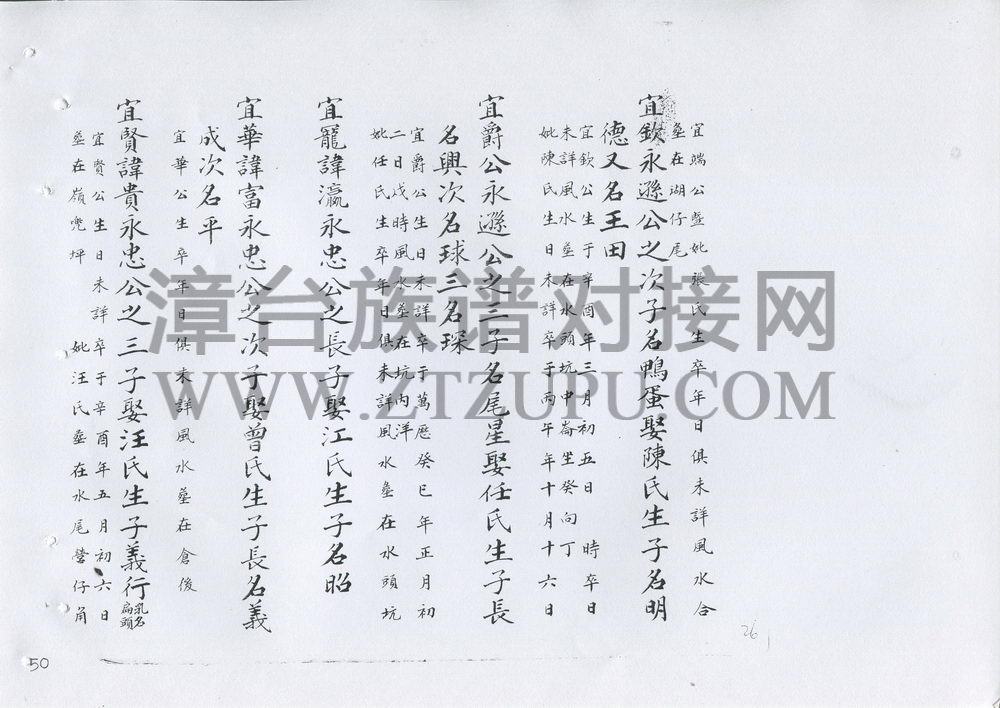 宜端公暨妣張氏生卒年日俱未詳風水合
塟在湖仔尾
宜欽永遜公之次子名鴨蛋娶陳氏生子名明
德又名王田
宜欽公生于辛酉年三月初五日 時卒日
未詳風水塟在水頭坑中崙坐癸向丁
妣陳氏生日未詳卒于丙午年十月十六日
宜爵公永遜公之三子名尾星娶任氏生子長
名興次名球三名琛
宜爵公生日未詳卒于萬歷癸巳年正月初
二日戌時風水塟在坑內洋
妣任氏生卒年日俱未詳風水塟在水頭坑
宜寵諱瀛永忠公之長子娶江氏生子名昭
宜華諱富永忠公之次子娶曾氏生子長名義
成次名平
宜華公生卒年日俱未詳風水塟在倉後
宜賢諱貴永忠公之三子娶汪氏生子義行乳名扁頭
宜賢公生日未詳卒于辛酉年五月初六日
塟在嶺兜坪 妣汪氏塟在水尾營仔角
26
50
漳台族谱对接网
WWW.ZTZUPU.COM